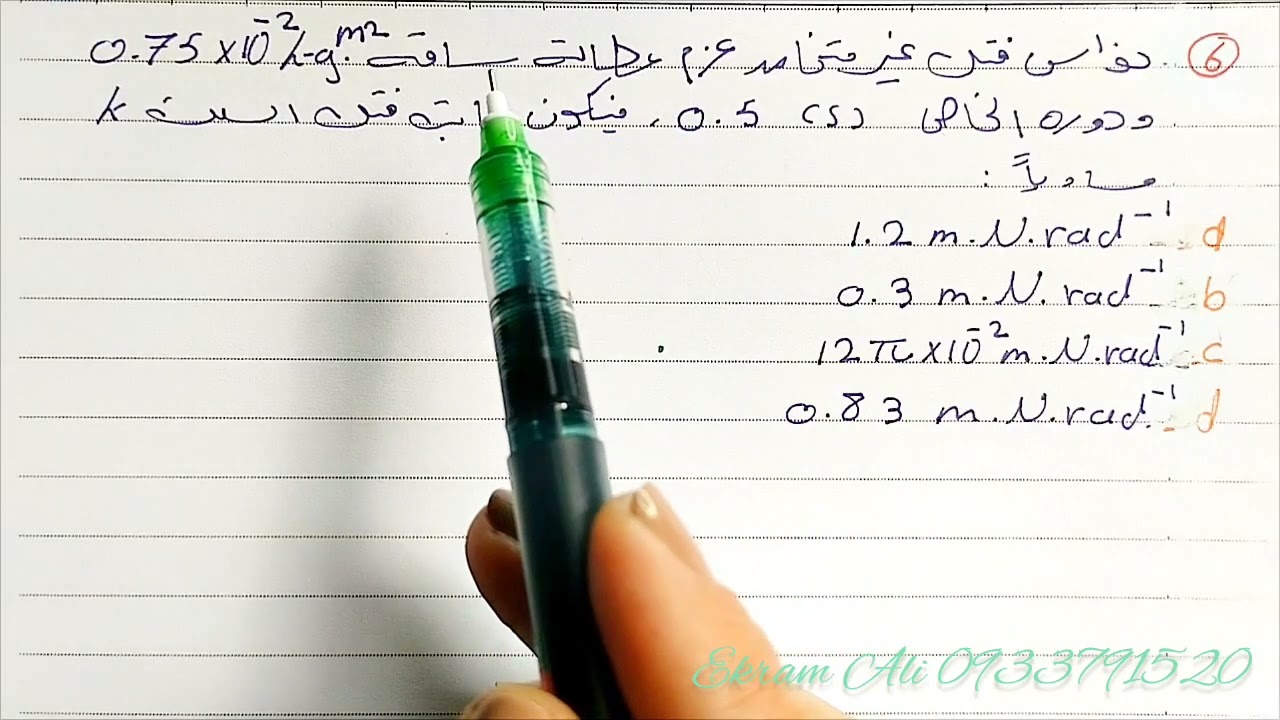 6 نواس فتل غير متخامد عزم عطالة ساقه 0.75 x 10^-2 kg.m^2
ودوره الخاص 0.5 (s) ، فيكون ثابت فتل السلك k
مساوياً :
d - 1.2 m.N.rad^-1
b - 0.3 m.N.rad^-1
c - 12π x 10^-2 m.N.rad^-1
d - 0.83 m.N.rad^-1
Ekram Ali 0933791520